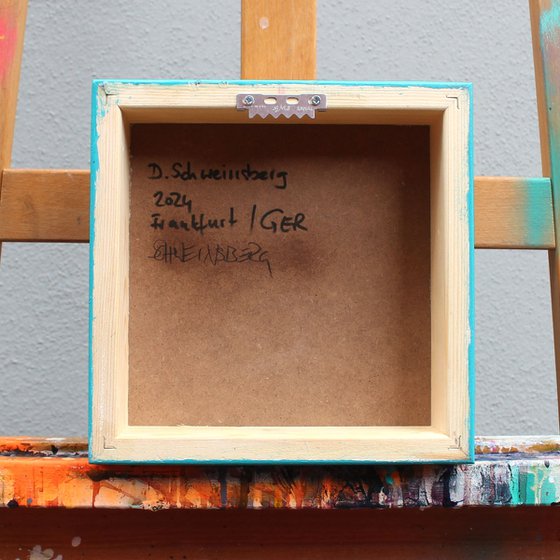 D. Schweinsberg
2024
Frankfurt / GER
SCHWEINSBERG